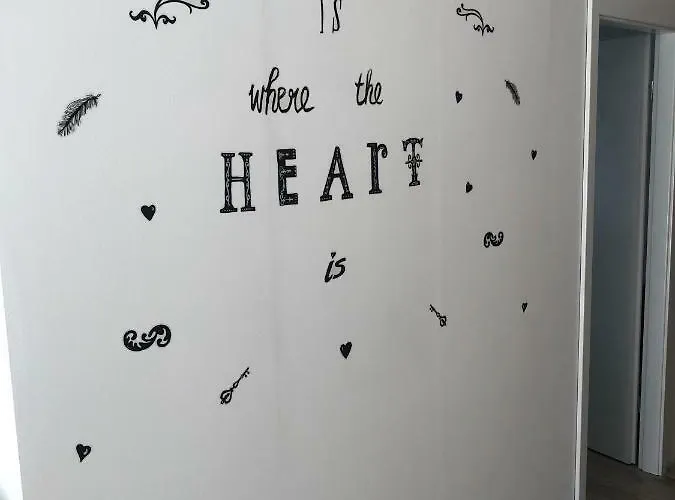 IS
where the
HEArT
is